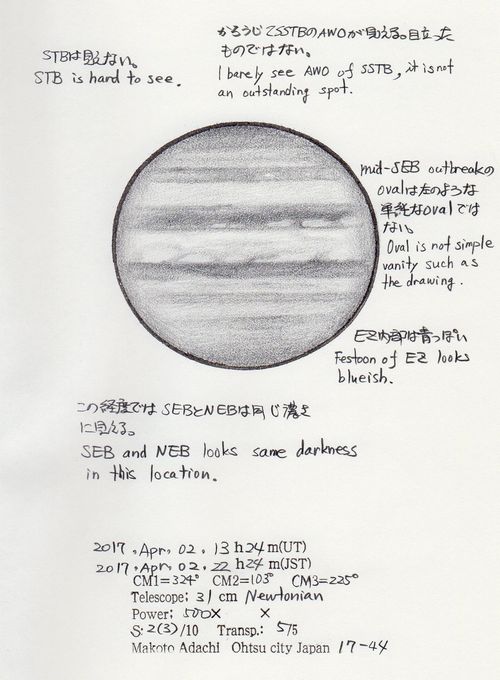 かろうじてSSTBのAWOが見える。目立った
ものではない。
I barely see AWO of SSTB, it is not
an outstanding spot.
STBは見えない。
STB is hard to see.
mid-SEB outbreakの
ovalは左のような
単純なovalでは
ない。
Oval is not simple
vanity such as
the drawing.
EZ内部は青っぽい
Festoon of EZ looks
blueish.
この経度ではSEBとNEBは同じ濃さ
に見える。
SEB and NEB looks same darkness
in this location.
2017, Apr, 02. 13 h 24 m(UT)
2017, Apr, 02. 22 h 24 m(JST)
CM1=324° CM2=103° CM3=225°
Telescope: 31 cm Newtonian
Power: 500× ×
S: 2(3)/10 Transp.: 5/5
Makoto Adachi Ohtsu city Japan 17-44